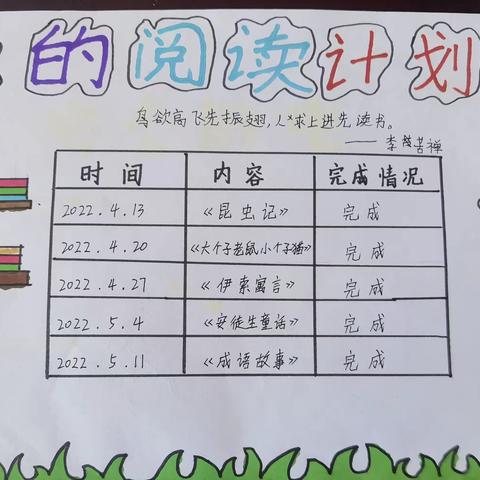 的阅读计划
鸟欲高飞先振翅,人求上进先读书。
——李苦禅
时间 内容 完成情况
2022.4.13 《昆虫记》 完成
2022.4.20 《大个子老鼠小个子猫》 完成
2022.4.27 《伊索寓言》 完成
2022.5.4 《安徒生童话》 完成
2022.5.11 《成语故事》 完成